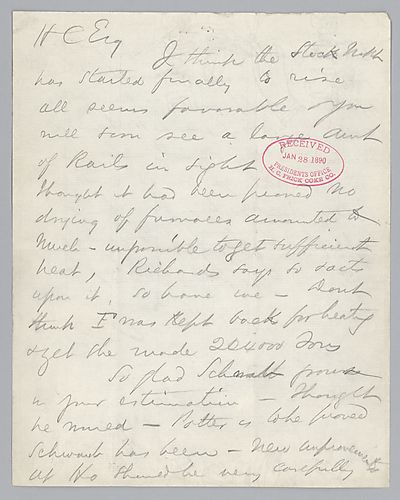 H C Esq
I think the Stock Mkt
has started finally to rise
all seems favorable & you
will soon see a large amt
of Rails in sight
RECEIVED
JAN 28 1890
PRESIDENT'S OFFICE
H. C. FRICK COKE CO.
thought it had been proved no
drying of furnaces amounted to
much - impossible to get sufficient
heat, Richards says so & acts
upon it, so have we - Don't
think I was kept back for heating
& yet she made 204000 Tons
So glad Schwab proves
in your estimation - Thought
he wd - Potter is to be proved
Schwab has been - New improvements
at Ho should be very carefully